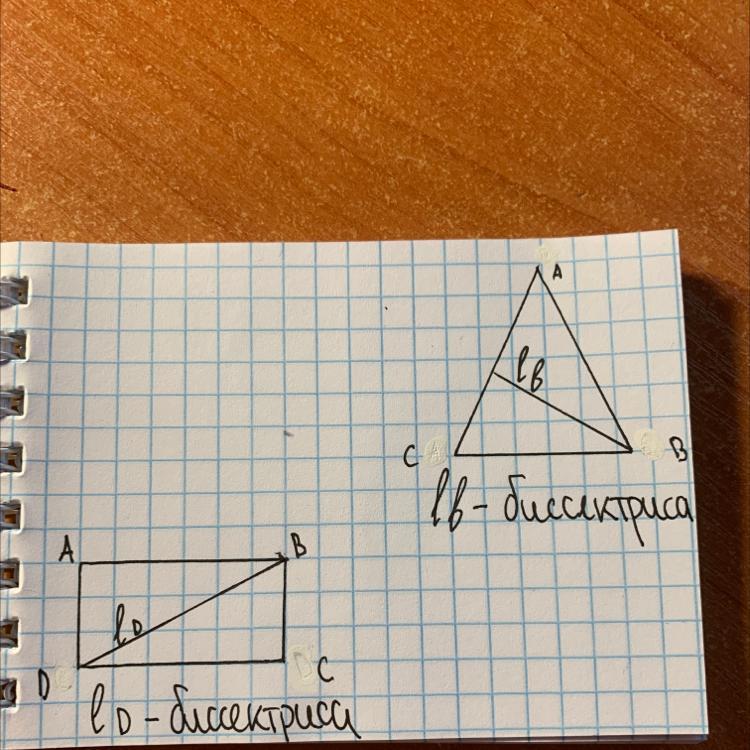 A
lB
C
B
lB - биссектриса
A
B
lD
D
C
lD - биссектриса